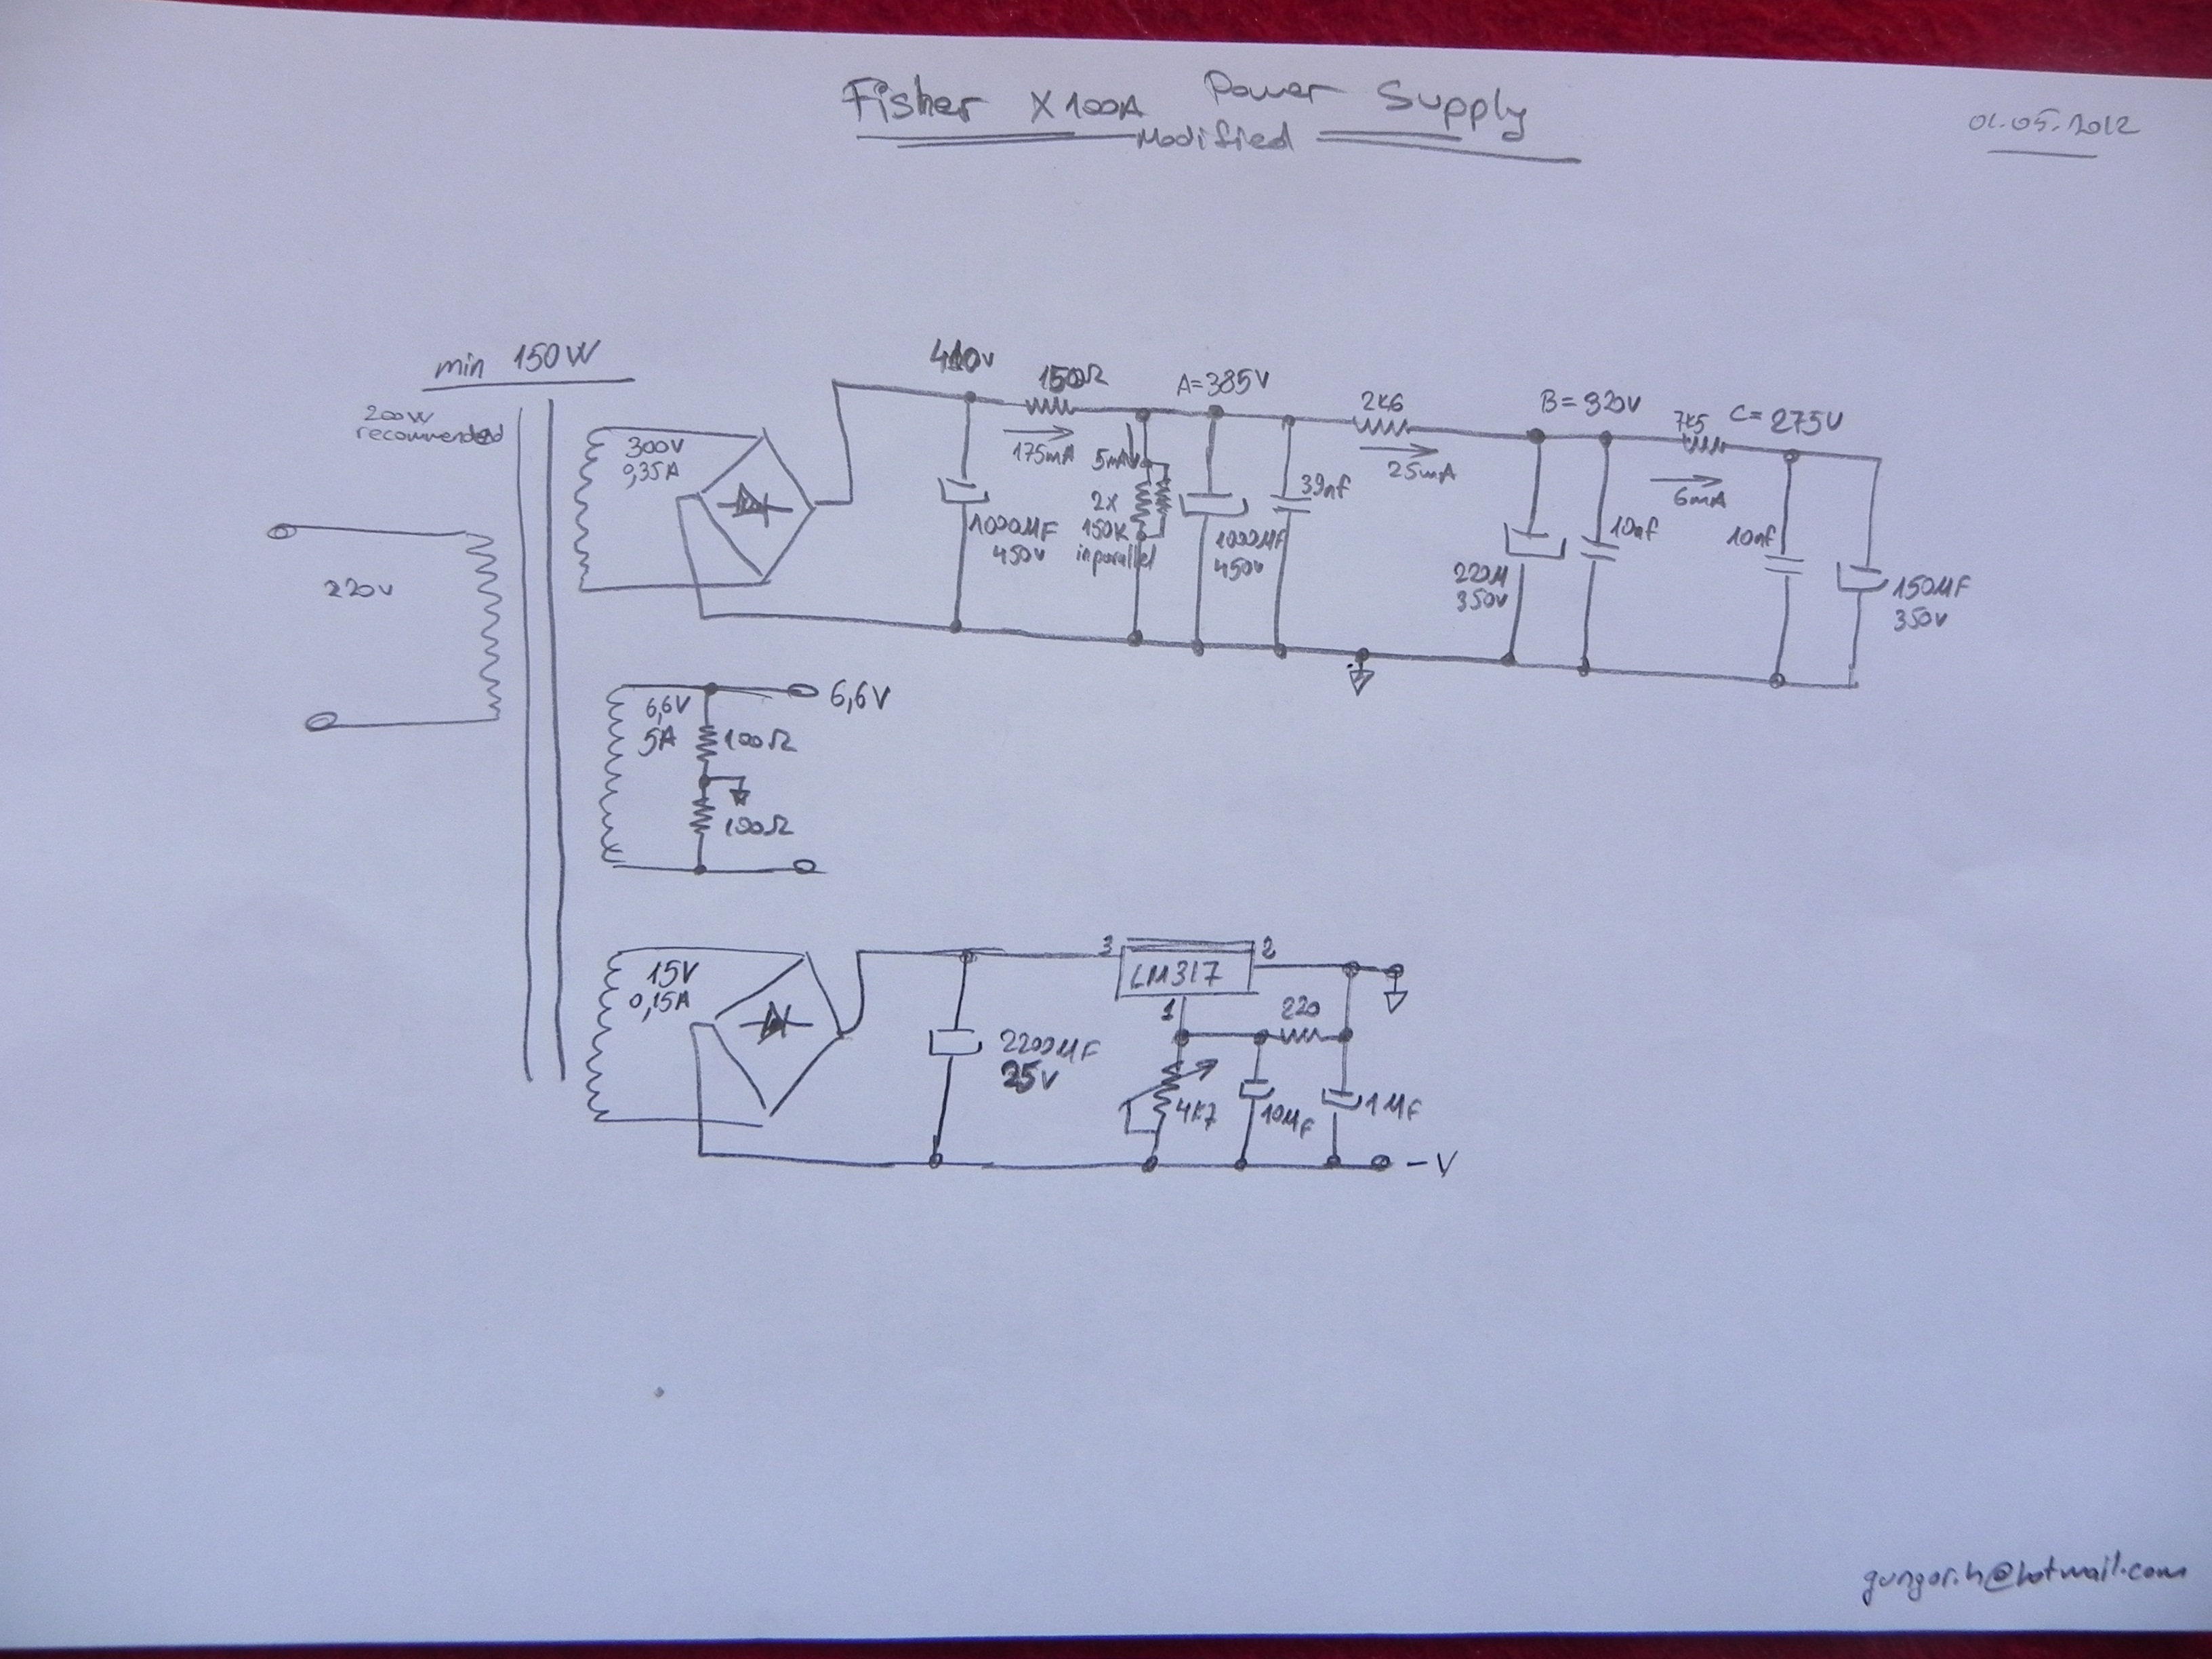 Fisher X100A Power Supply
Modified
01.05.2012
min 150W
200W
recommended
220V
300V
0,35A
410V
150Ω
175mA
1000µF
450V
5mA
2x
150K
in parallel
A=385V
1000µF
450V
39nf
2K6
25mA
B=320V
220µ
350V
10nf
7K5
6mA
C=275V
10nf
150µF
350V
6,6V
5A
100Ω
100Ω
6,6V
15V
0,15A
2200µF
25V
3
LM317
2
1
220
4K7
10µF
1µF
-V
gungor.h@hotmail.com